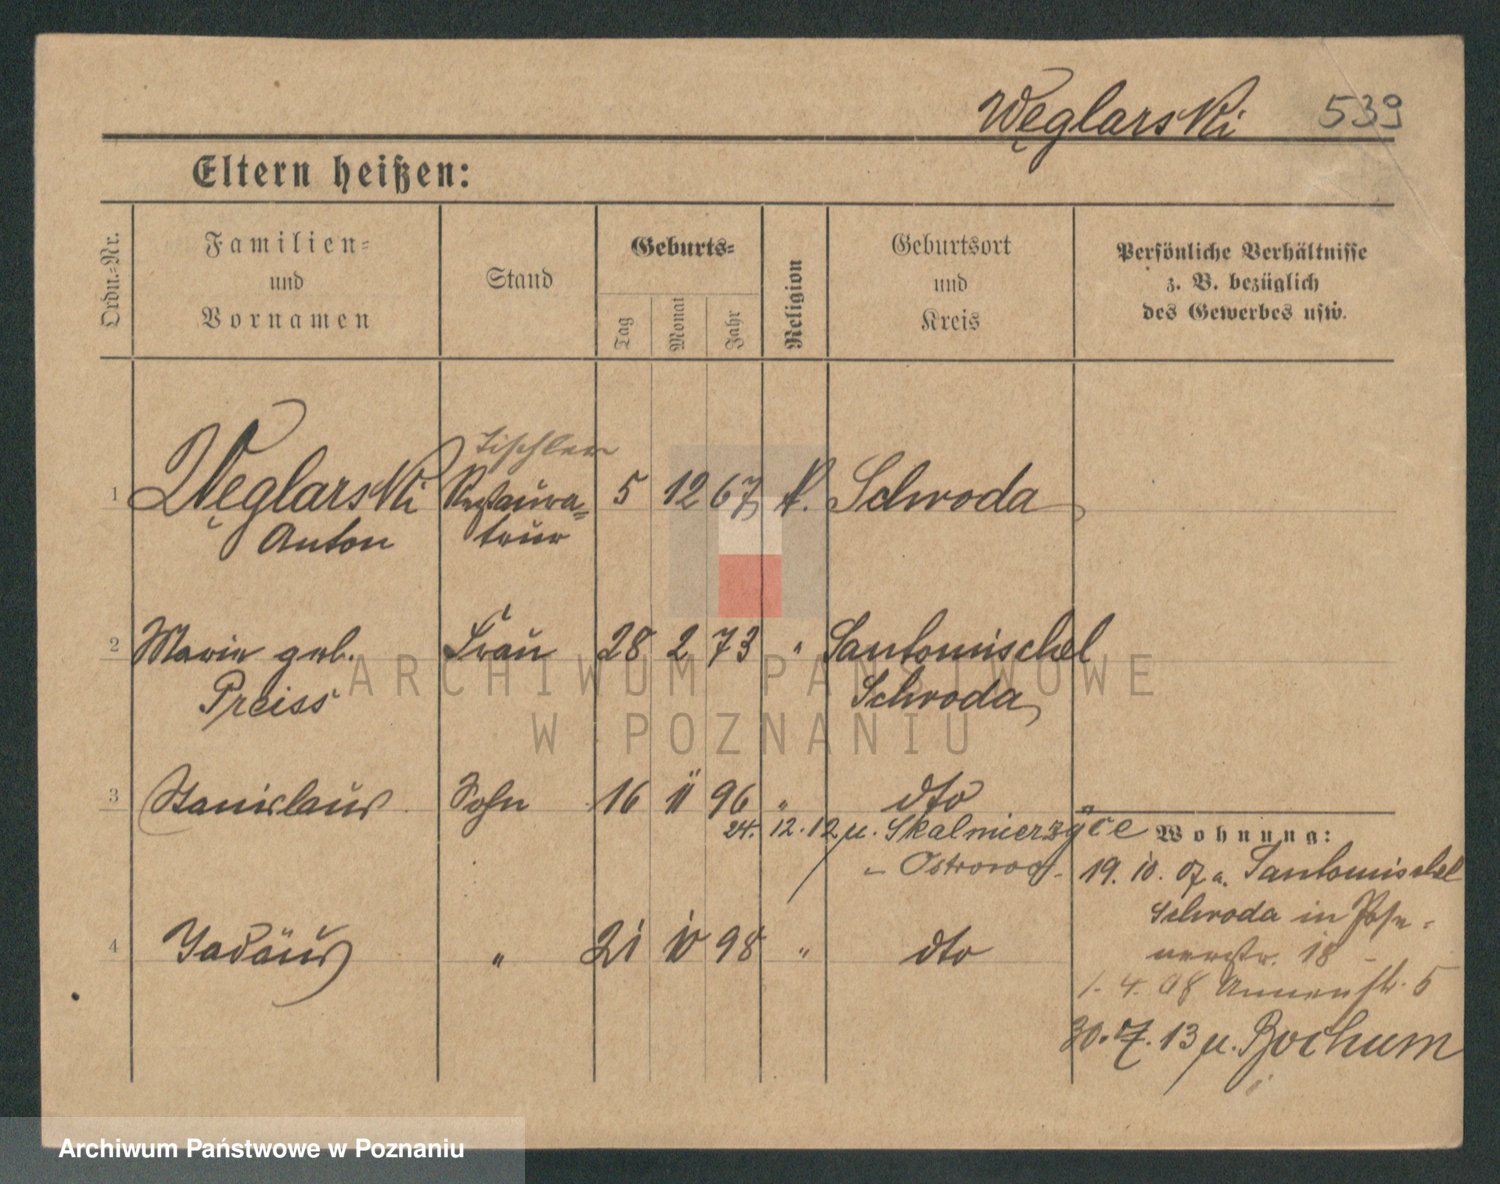 Węglarski 539
Eltern heißen:
Ordn.-Nr.
Familien-
und
Vornamen
Stand
Geburts-
Tag
Monat
Jahr
Religion
Geburtsort
und
Kreis
Persönliche Verhältnisse
z. B. bezüglich
des Gewerbes usw.
Tischler
1 Węglarski Restaura- 5 12 67 k. Schroda
Anton teur
2 Marie geb. Frau 28 2 73 " Santomischel
Preiss Schroda
3 Stanislaus Sohn 16 11 96 " dto
24. 12. 12 u. Skalmierzyce
" Ostrowo
Wohnung:
19. 10. 07 a. Santomischel
Schroda in Pose-
nerstr. 18
4 Tadäus " 21 10 98 " dto
1. 4. 08 Annenstr. 5
30. 7. 13 u. Bochum
ARCHIWUM PAŃSTWOWE
W POZNANIU
Archiwum Państwowe w Poznaniu